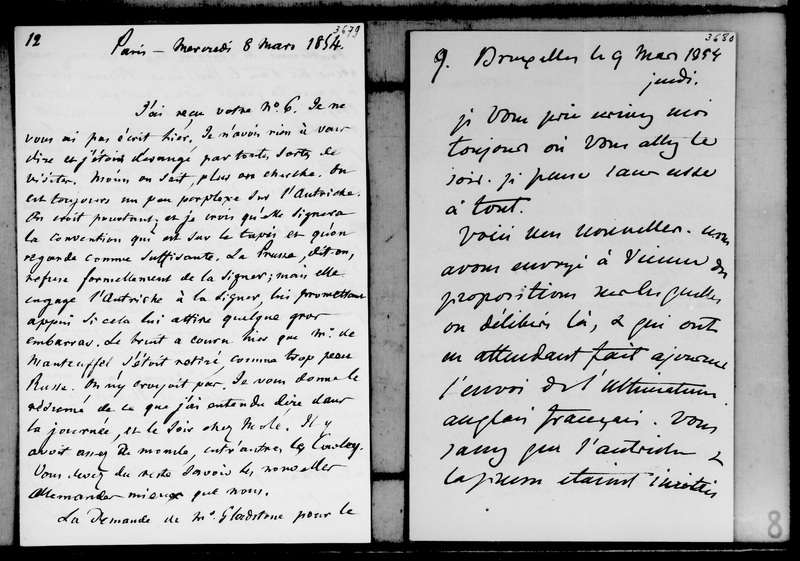 12
3679
Paris - Mercredi 8 Mars 1854.
J'ai reçu votre No 6. Je ne
vous ai pas écrit hier. Je n'avois rien à vous
dire et j'étois dérangé par toutes sortes de
visites. Moins on sait, plus on cherche. On
est toujours un peu perplexe sur l'Autriche.
On croit pourtant, et je crois qu'elle signera
la convention qui est sur le tapis et qu'on
regarde comme suffisante. La Prusse, dit-on,
refuse formellement de la signer; mais elle
engage l'Autriche à la signer, lui promettant
appui si cela lui attire quelque gros
embarras. Le bruit a couru hier que Mr de
Manteuffel s'étoit retiré, comme trop peu
Russe. On n'y croyoit pas. Je vous donne le
résumé de ce que j'ai entendu dire dans
la journée, et le soir chez Molé. Il y
avoit assez de monde, entr'autres les Cowley.
Vous devez du reste savoir les nouvelles
allemandes mieux que nous.
La Demande de Mr Gladstone pour le
3680
9. Bruxelles le 9 Mars 1854
jeudi.
je vous prie écrivez moi
toujours où vous allez le
soir. je pense sans cesse
à tout.
Voici mes nouvelles. nous
avons envoyé à Vienne des
propositions sur lesquelles
on délibère là, & qui ont
en attendant fait ajourner
l'envoi de l'ultimatum
anglais français. Vous
savez que l'autriche &
la prusse etaient invités
8